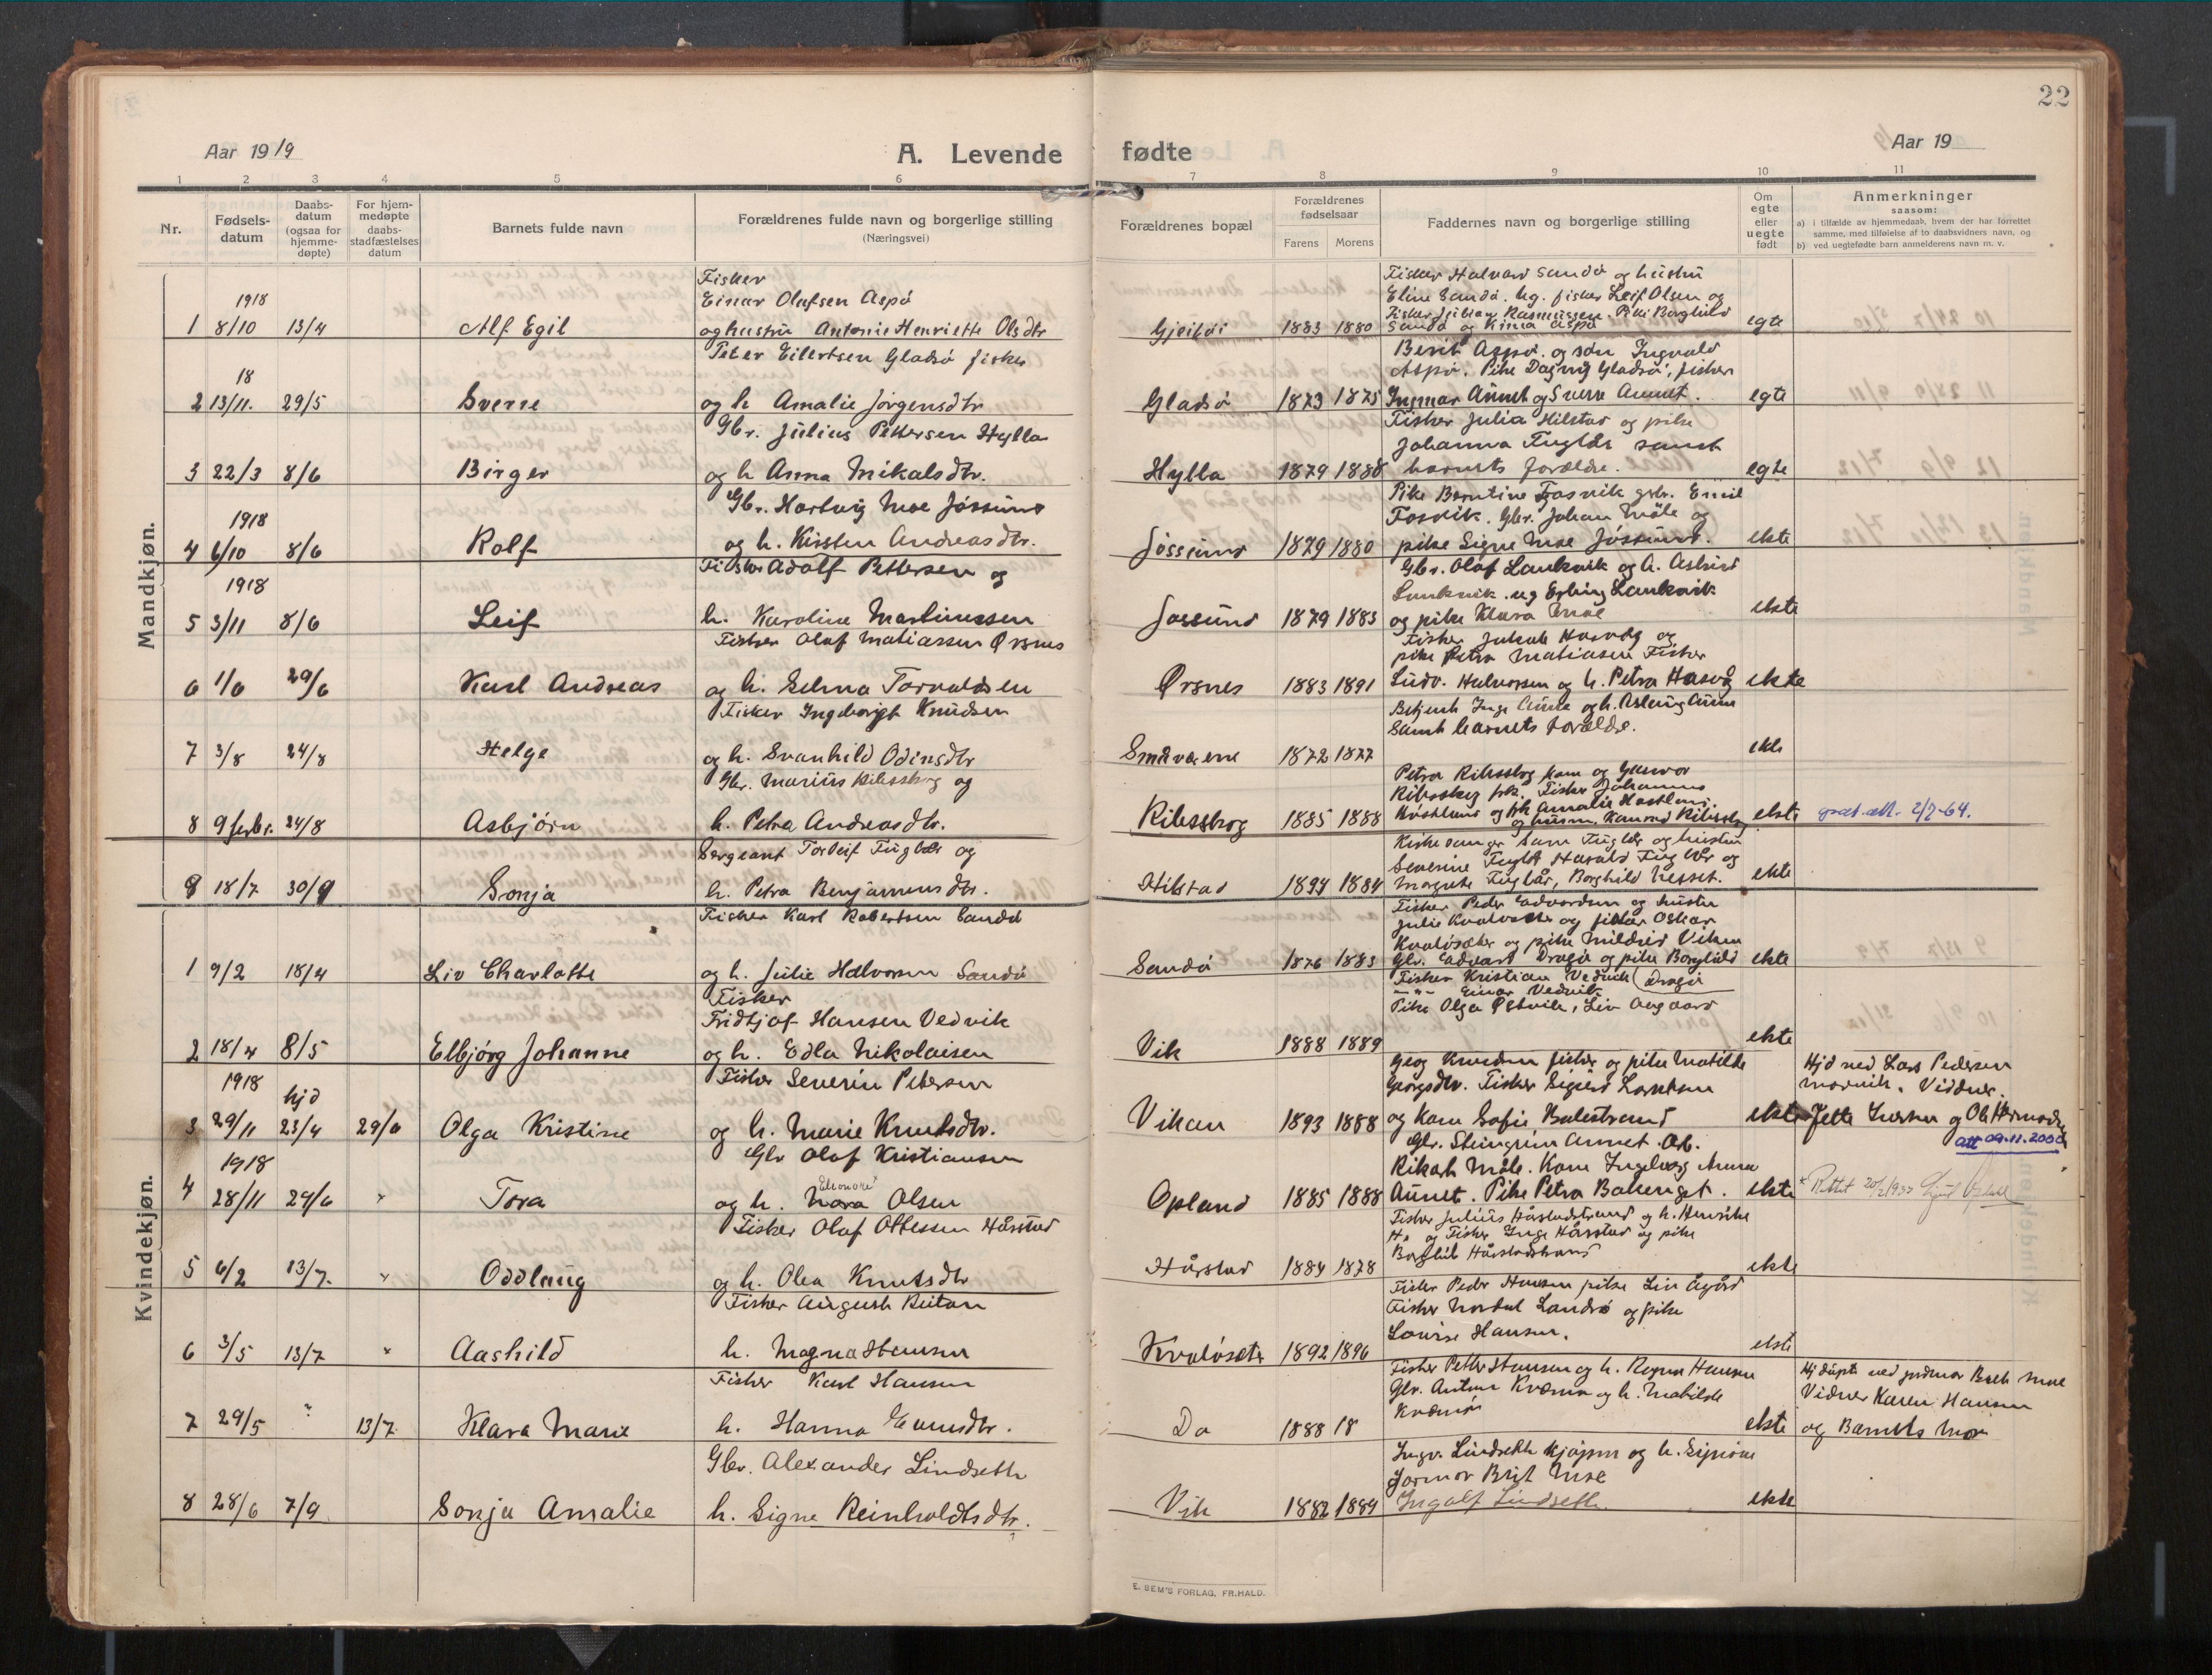 22
Aar 1919
A. Levende fødte
Aar 19
1 2 3 4 5 6 7 8 9 10 11
Nr.
Fødsels-
datum
Daabs-
datum
(ogsaa for
hjemme-
døpte)
For hjem-
medøpte
daabs-
stadfæstelses
datum
Barnets fulde navn
Forældrenes fulde navn og borgerlige stilling
(Næringsvei)
Forældrenes bopæl
Forældrenes
fødselsaar
Farens Morens
Faddernes navn og borgerlige stilling
Om
egte
eller
uegte
født
Anmerkninger
saasom:
a) i tilfælde av hjemmedaab, hvem der har forrettet
samme, med tilføielse af to daabsvidners navn, og
b) ved uegtefødte barn anmelderens navn m. v.
Mandkjøn.
1918
1 8/10 13/4 Alf Egil
Fisker
Einar Olafsen Aspö
og hustru Antonie Henriette Olsdtr
1883 1880
Fisker Halvard Sandö og hustru
Eline Sandö. Ug. fisker Leif Olsen og
Sandö og Aspö
egte
18
2 13/11. 29/5 Sverre
Peter Eilertsen Gladsö fisker
og h. Amalie Jörgensdtr
Gladsö 1873 1875
Berit Aspö. og sön Ingvald
Aspö. Pike Dagny Gladsö, fisker
Ingmar Aunet og Sverre Aunet.
egte
3 22/3 8/6 Birger
Gbr. Julius Pettersen Hylla
og h Anna Mikalsdtr.
Hylla 1879 1888
Fisker Julia Hilstad og pike
Johanna Fuglår samt
barnets forældre.
egte
1918
4 6/10 8/6 Rolf
Gbr. Hartvig Moe Jössund
og h. Kirsten Andreasdtr.
Jössund 1879 1880
Pike Berntine Fosvik gbr. Emil
Fosvik. Gbr. Johan Måle og
pike Signe Moe Jössund.
ekte
1918
5 3/11 8/6 Leif
Fisker Adolf Pettersen og
h. Karoline Martinussen
Jössund 1879 1883
Gbr. Olaf Lankvik og h. Astrid
Lankvik. ug Erling Lankvik
og pike Klara Moe
ekte
6 1/6 29/6 Karl Andreas
Fisker Olaf Matiassen Ørsnes
og h. Selma Torvaldsen
Ørsnes 1883 1891
Fisker Jakob Hasvåg og
pike Petra Matiasen Fisker
Ludv. Halvorsen og h. Petra Hasvåg
ekte
7 3/8 24/8 Helge
Fisker Ingebrigt Knudsen
og h. Svanhild Odinsdtr
Småværene 1872 1877
Betjent Inge Aune og h. Aslaug Aune
samt barnets forældre.
ekte
8 9 febr. 24/8 Asbjörn
Gbr. Marius Ribesskog og
h. Petra Andreasdtr.
Ribesskog 1885 1888
Petra Ribesskog kone og Gunvor
Ribesskog frk. Fisker Johannes
ekte
att. 2/2-64.
9 18/7 30/9 Sonja
Sergeant Torleif Fuglår og
h. Petra Benjaminsdtr.
Hilstad 1894 1884
Kirkesanger Fuglår og hustru
Severine Fuglår Harald Fuglår og
Margrete Fuglår, Borghild Hesset.
ekte
Kvindekjøn.
1 9/2 18/4 Liv Charlotte
Fisker Karl Robertsen Sandö
og h. Julie Halvorsen Sandö
Sandö 1876 1883
Fisker Peder Edvardsen og hustru
Julie Kvalösæter og fisker Oskar
Kvalösæter og pike Mildrid Viken
Gbr. Edvart Dragö og pike Borghild
Dragö
ekte
2 18/4 8/5 Elbjörg Johanne
Fisker
Fridtjof Hansen Vedvik
og h. Edla Nikolaisen
Vik 1888 1889
Fisker Kristian Vedvik
— " — Einar Vedvik
Pike Olga Vedvik, Liv Aagaard
ekte
1918
hjd
3 29/11 23/4 29/6 Olga Kristine
Fisker Severin Petersen
og h. Marie Knutsdtr.
Vikan 1893 1888
Georg Knudsen fisker og pike Matilde
Georgsdtr. Fisker Sigurd Larsen
og kone Sofie Balestrand
ekte
Hjd ved Lars Pedersen
Vidner.
Jette Iversen og Ole
att 09.11.2000
1918
4 28/11 29/6 " Tora
Gbr Olaf Kristiansen
Eleonora
og h. Nora Olsen
Opland 1885 1888
Gbr. Steingrim Aunet. Arb.
Rikard Måle. Kone Ingeborg Anna
Aunet. Pike Petra Bakenget.
ekte
Rettet
5 6/2 13/7. " Oddlaug
Fisker Olaf Ottessen Hårstad
og h. Olea Knutsdtr
Hårstad 1884 1878
Fisker Julius Hårstadstrand og h. Henrikke
H. og Fisker Inge Hårstad og pike
Borghild Hårstadstrand
ekte
6 3/5 13/7 " Aashild
Fisker August Reitan
h. Magna Hansen
Kvalösæter 1892 1896
Fisker Peder Hansen pike Liv Ågård
Fisker Nordal Sandö og pike
Lovise Hansen.
ekte
7 29/5 " 13/7 Klara Marie
Fisker Karl Hansen
h. Hanna Evensdtr.
Do 1888 18
Fisker Petter Hansen og h. Ragna Hansen
Gbr. Anton Kvernö og h. Mathilde
Kvernö
ekte
Hjdöpt ved jordmor Brit Moe
Vidner Karen Hansen
og Barnets Mor
8 28/6 7/9 Sonja Amalie
Gbr. Alexander Lindseth
h. Signe Reinholdtsdtr.
Vik 1882 1889
Ingv. Lindseth kjöpm og h.
Jormor Brit Moe
Ingolf Lindseth.
ekte
E. SEM'S FORLAG, FR.HALD.